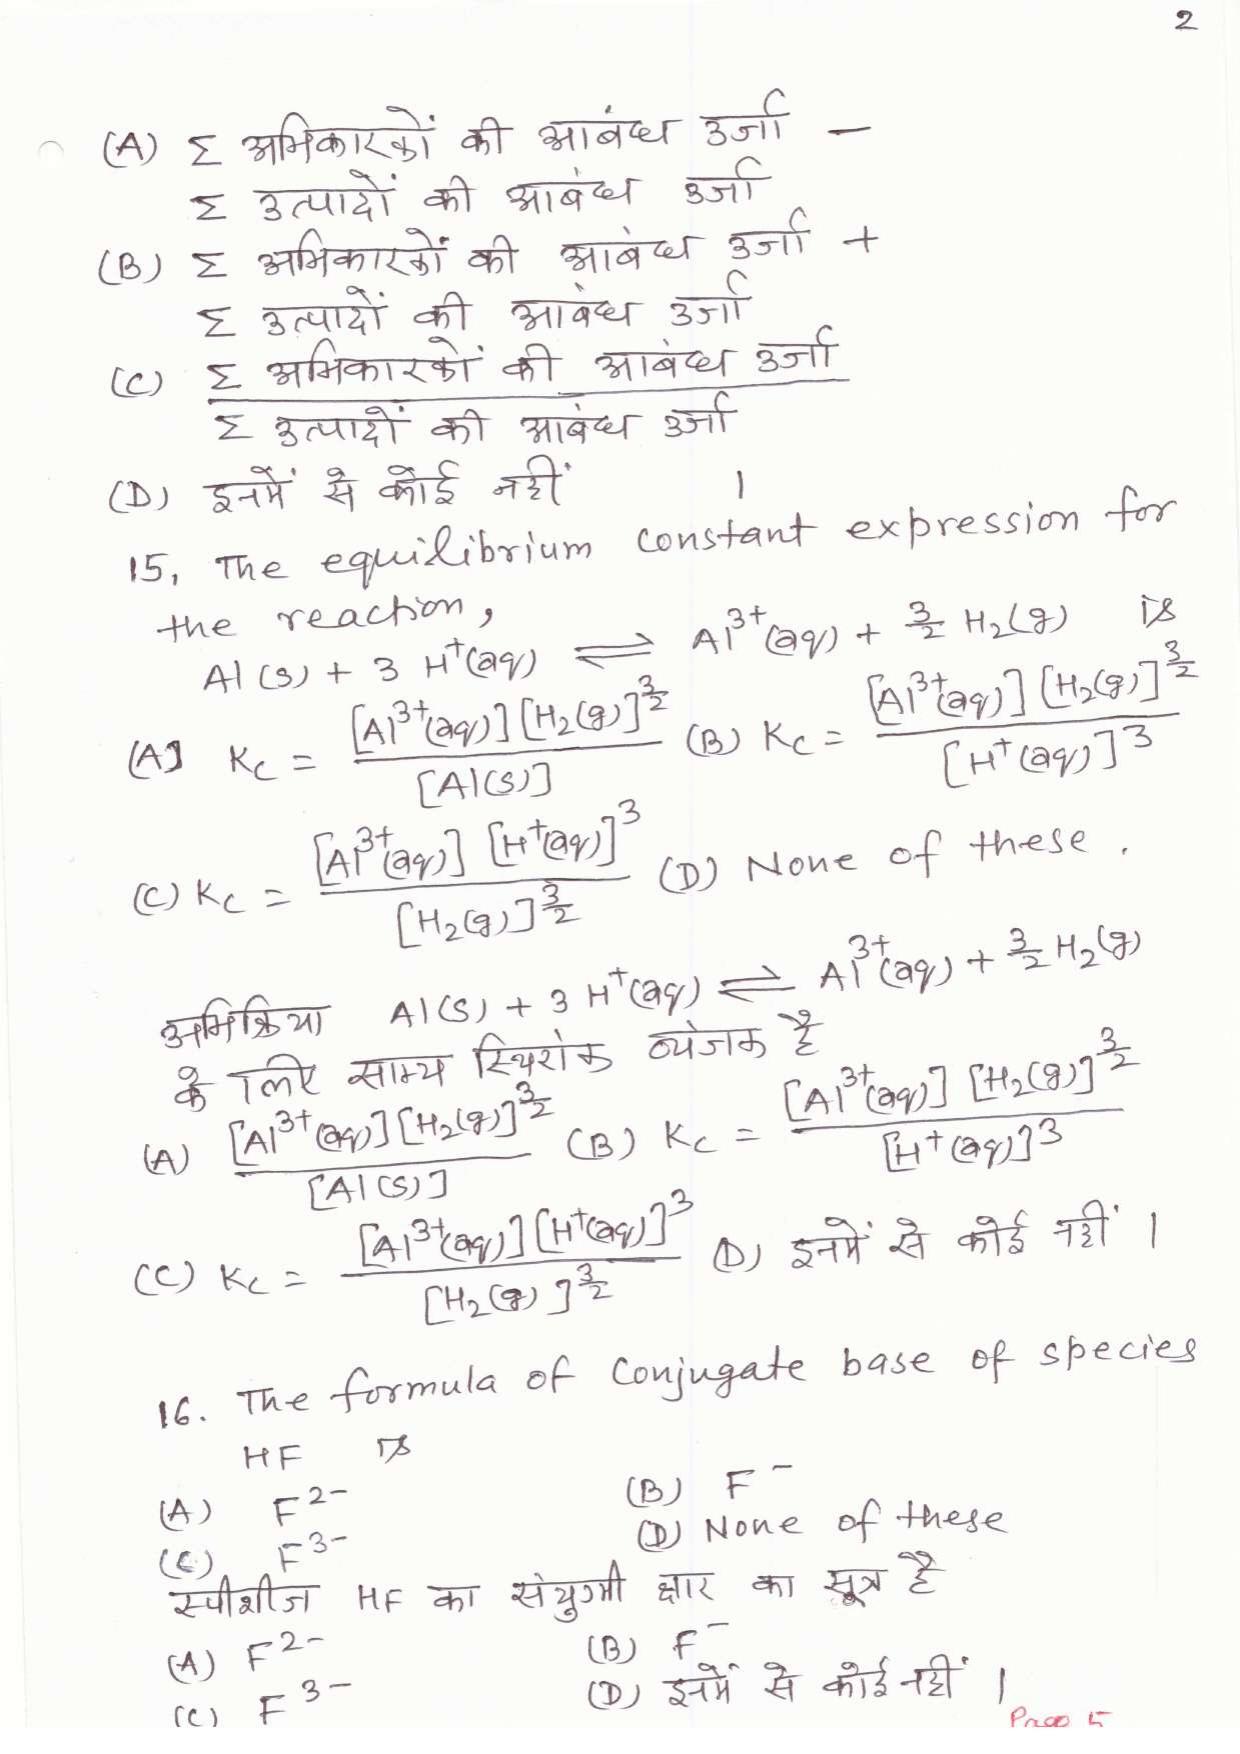 2
(A) Σ अभिकारकों की आबंध उर्जा −
Σ उत्पादों की आबंध उर्जा
(B) Σ अभिकारकों की आबंध उर्जा +
Σ उत्पादों की आबंध उर्जा
(C) Σ अभिकारकों की आबंध उर्जा
Σ उत्पादों की आबंध उर्जा
(D) इनमें से कोई नहीं ।
15, The equilibrium constant expression for
the reaction,
Al(s) + 3 H⁺(aq) ⇌ Al³⁺(aq) + 3/2 H₂(g) is
(A] Kc = [Al³⁺(aq)][H₂(g)]^3/2 / [Al(s)] (B) Kc = [Al³⁺(aq)][H₂(g)]^3/2 / [H⁺(aq)]³
(C) Kc = [Al³⁺(aq)] [H⁺(aq)]³ / [H₂(g)]^3/2 (D) None of these .
अभिक्रिया Al(s) + 3 H⁺(aq) ⇌ Al³⁺(aq) + 3/2 H₂(g)
के लिए साम्य स्थिरांक व्यंजक है
(A) [Al³⁺(aq)][H₂(g)]^3/2 / [Al(s)] (B) Kc = [Al³⁺(aq)] [H₂(g)]^3/2 / [H⁺(aq)]³
(C) Kc = [Al³⁺(aq)][H⁺(aq)]³ / [H₂(g)]^3/2 (D) इनमें से कोई नहीं ।
16. The formula of conjugate base of species
HF is
(A) F²⁻ (B) F⁻
(C) F³⁻ (D) None of these
स्पीशीज HF का संयुग्मी क्षार का सूत्र है
(A) F²⁻ (B) F⁻
(C) F³⁻ (D) इनमें से कोई नहीं ।
Page 5